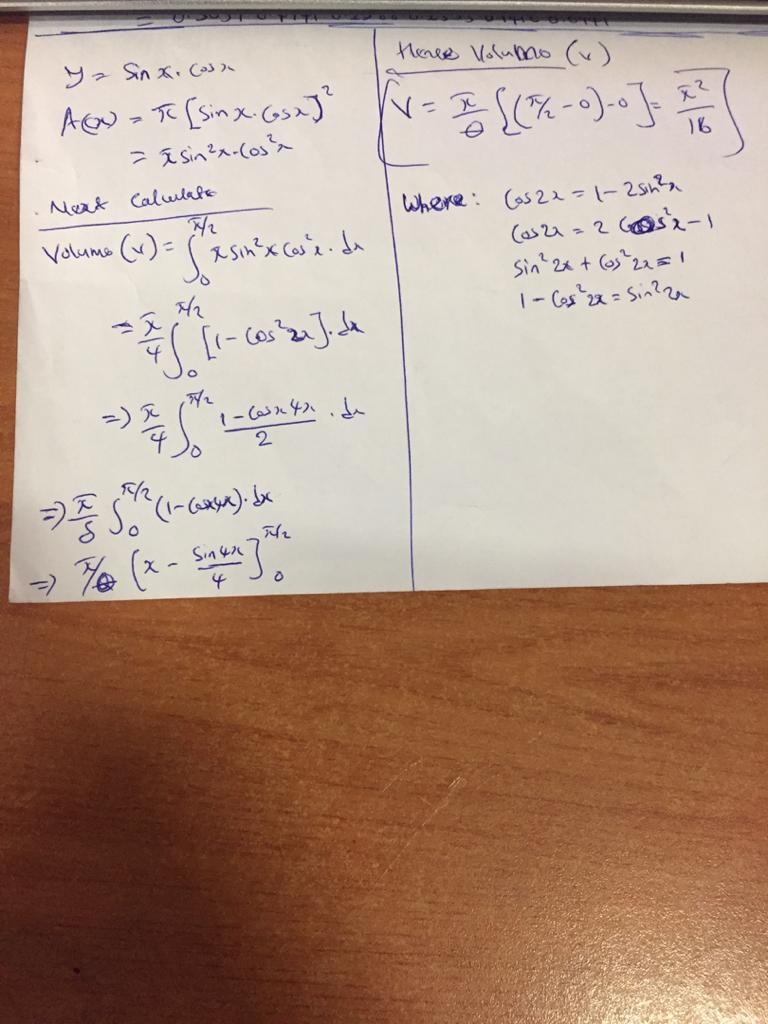 y = Sin x. Cos x
A(x) = π [Sin x. Cos x]²
= π sin²x. Cos²x
Next Calculate
Volume (v) = ∫₀^π/2 π sin²x Cos²x. dx
= π/4 ∫₀^π/2 [1 - Cos²2x]. dx
=) π/4 ∫₀^π/2 1 - Cosx 4x / 2 . dx
=) π/8 ∫₀^π/2 (1 - Cos4x). dx
=) π/8 (x - Sin4x/4]₀^π/2
Hence Volume (v)
V = π/8 [(π/2 - 0) - 0] = π²/16
Where: Cos2x = 1 - 2sin²x
Cos2x = 2 Cos²x - 1
Sin²2x + Cos²2x = 1
1 - Cos²2x = Sin²2x